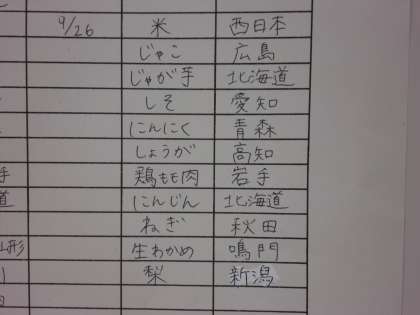 9/26 米 西日本
じゃこ 広島
じゃが芋 北海道
しそ 愛知
にんにく 青森
しょうが 高知
手 鶏もも肉 岩手
道 にんじん 北海道
ねぎ 秋田
形 生わかめ 鳴門
梨 新潟